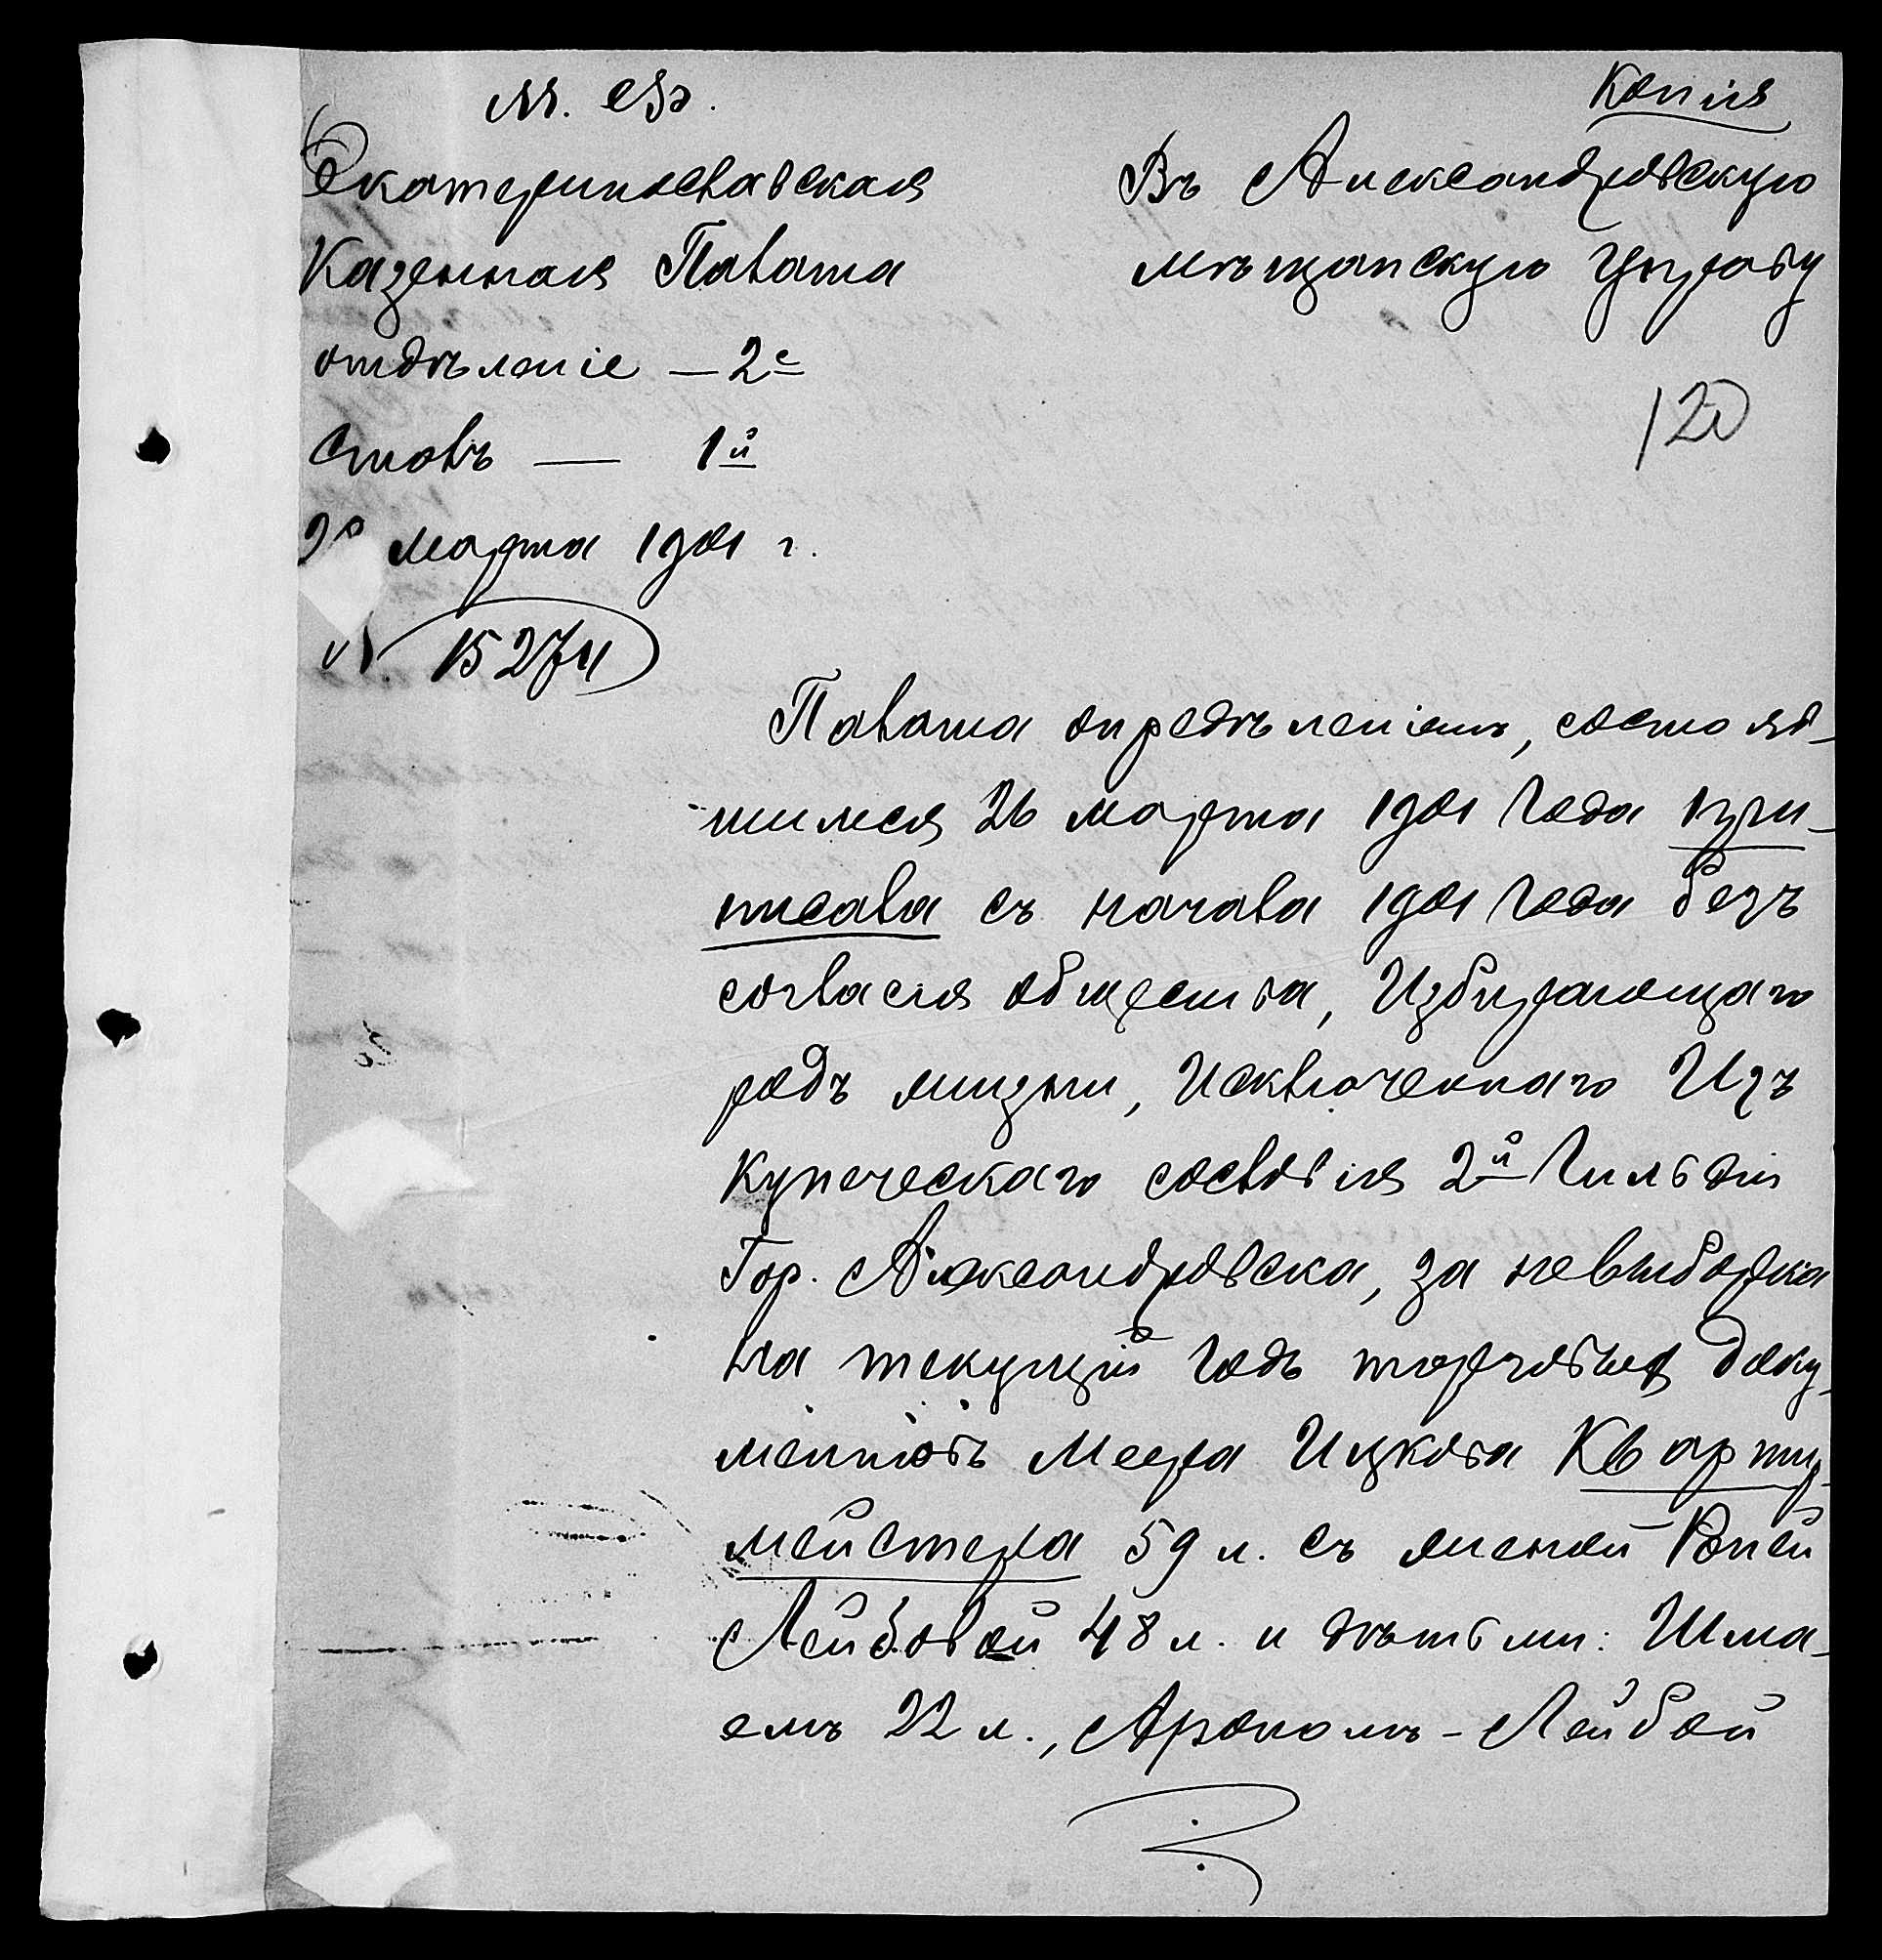 М. Ф.
Копія
Екатеринославская
Казенная Палата
отдѣленіе — 2е
Столъ — 1й
марта 1901 г.
N. 15274
Въ Александровскую
мѣщанскую Управу
120
Палата опредѣленіемъ, состояв-
шимся 26 марта 1901 года при-
писала съ начала 1901 года безъ
согласія общества, Избирающаго
родъ жизни, Исключеннаго Изъ
купеческаго сословія 2й Гильдіи
Гор. Александровска, за невыборка
на текущій годъ торговыхъ доку-
ментовъ Меера Ицкова Квартир-
мейстера 59 л. съ женой
Лейбовой 48 л. и дѣтьми: Шма-
емъ 22 л., Арономъ-Лейбой